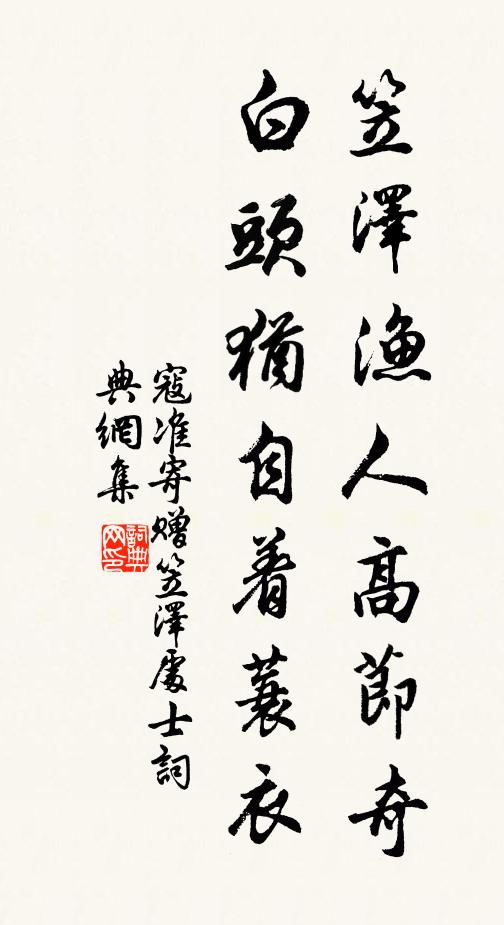 笠澤漁人高節奇
白頭猶自着蓑衣
寇准寄赠笠澤處士詞
典網集
詞典
网印